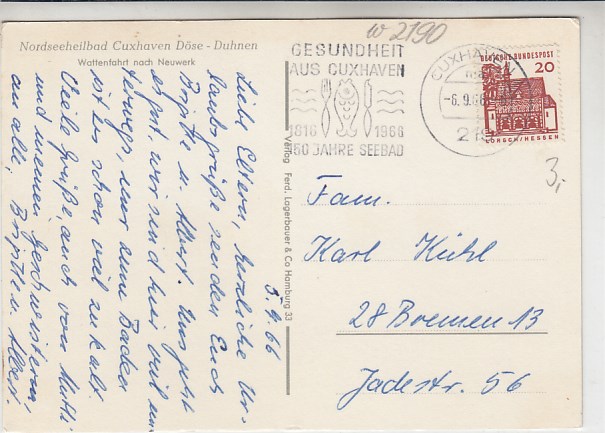 Nordseeheilbad Cuxhaven Döse - Duhnen
Wattenfahrt nach Neuwerk
w 2190
GESUNDHEIT
AUS CUXHAVEN
1816 1966
150 JAHRE SEEBAD
CUXHAVEN
-6.9.66
219
DEUTSCHE BUNDESPOST
20
LORSCH/HESSEN
3,
Verlag Ferd. Lagerbauer & Co Hamburg 33
5.9.66
Liebe Eltern, herzliche Ur-
laubsgrüße senden Euch
Brigitte u. Albert. Uns geht
es gut, wir sind hier viel un-
terwegs, nur zum Baden
ist es schon viel zu kalt.
Viele Grüße, auch von Mutti
und meinen Geschwistern,
an alle, Brigitte u. Albert.
Fam.
Karl Kühl
28 Bremen 13
Jadestr. 56